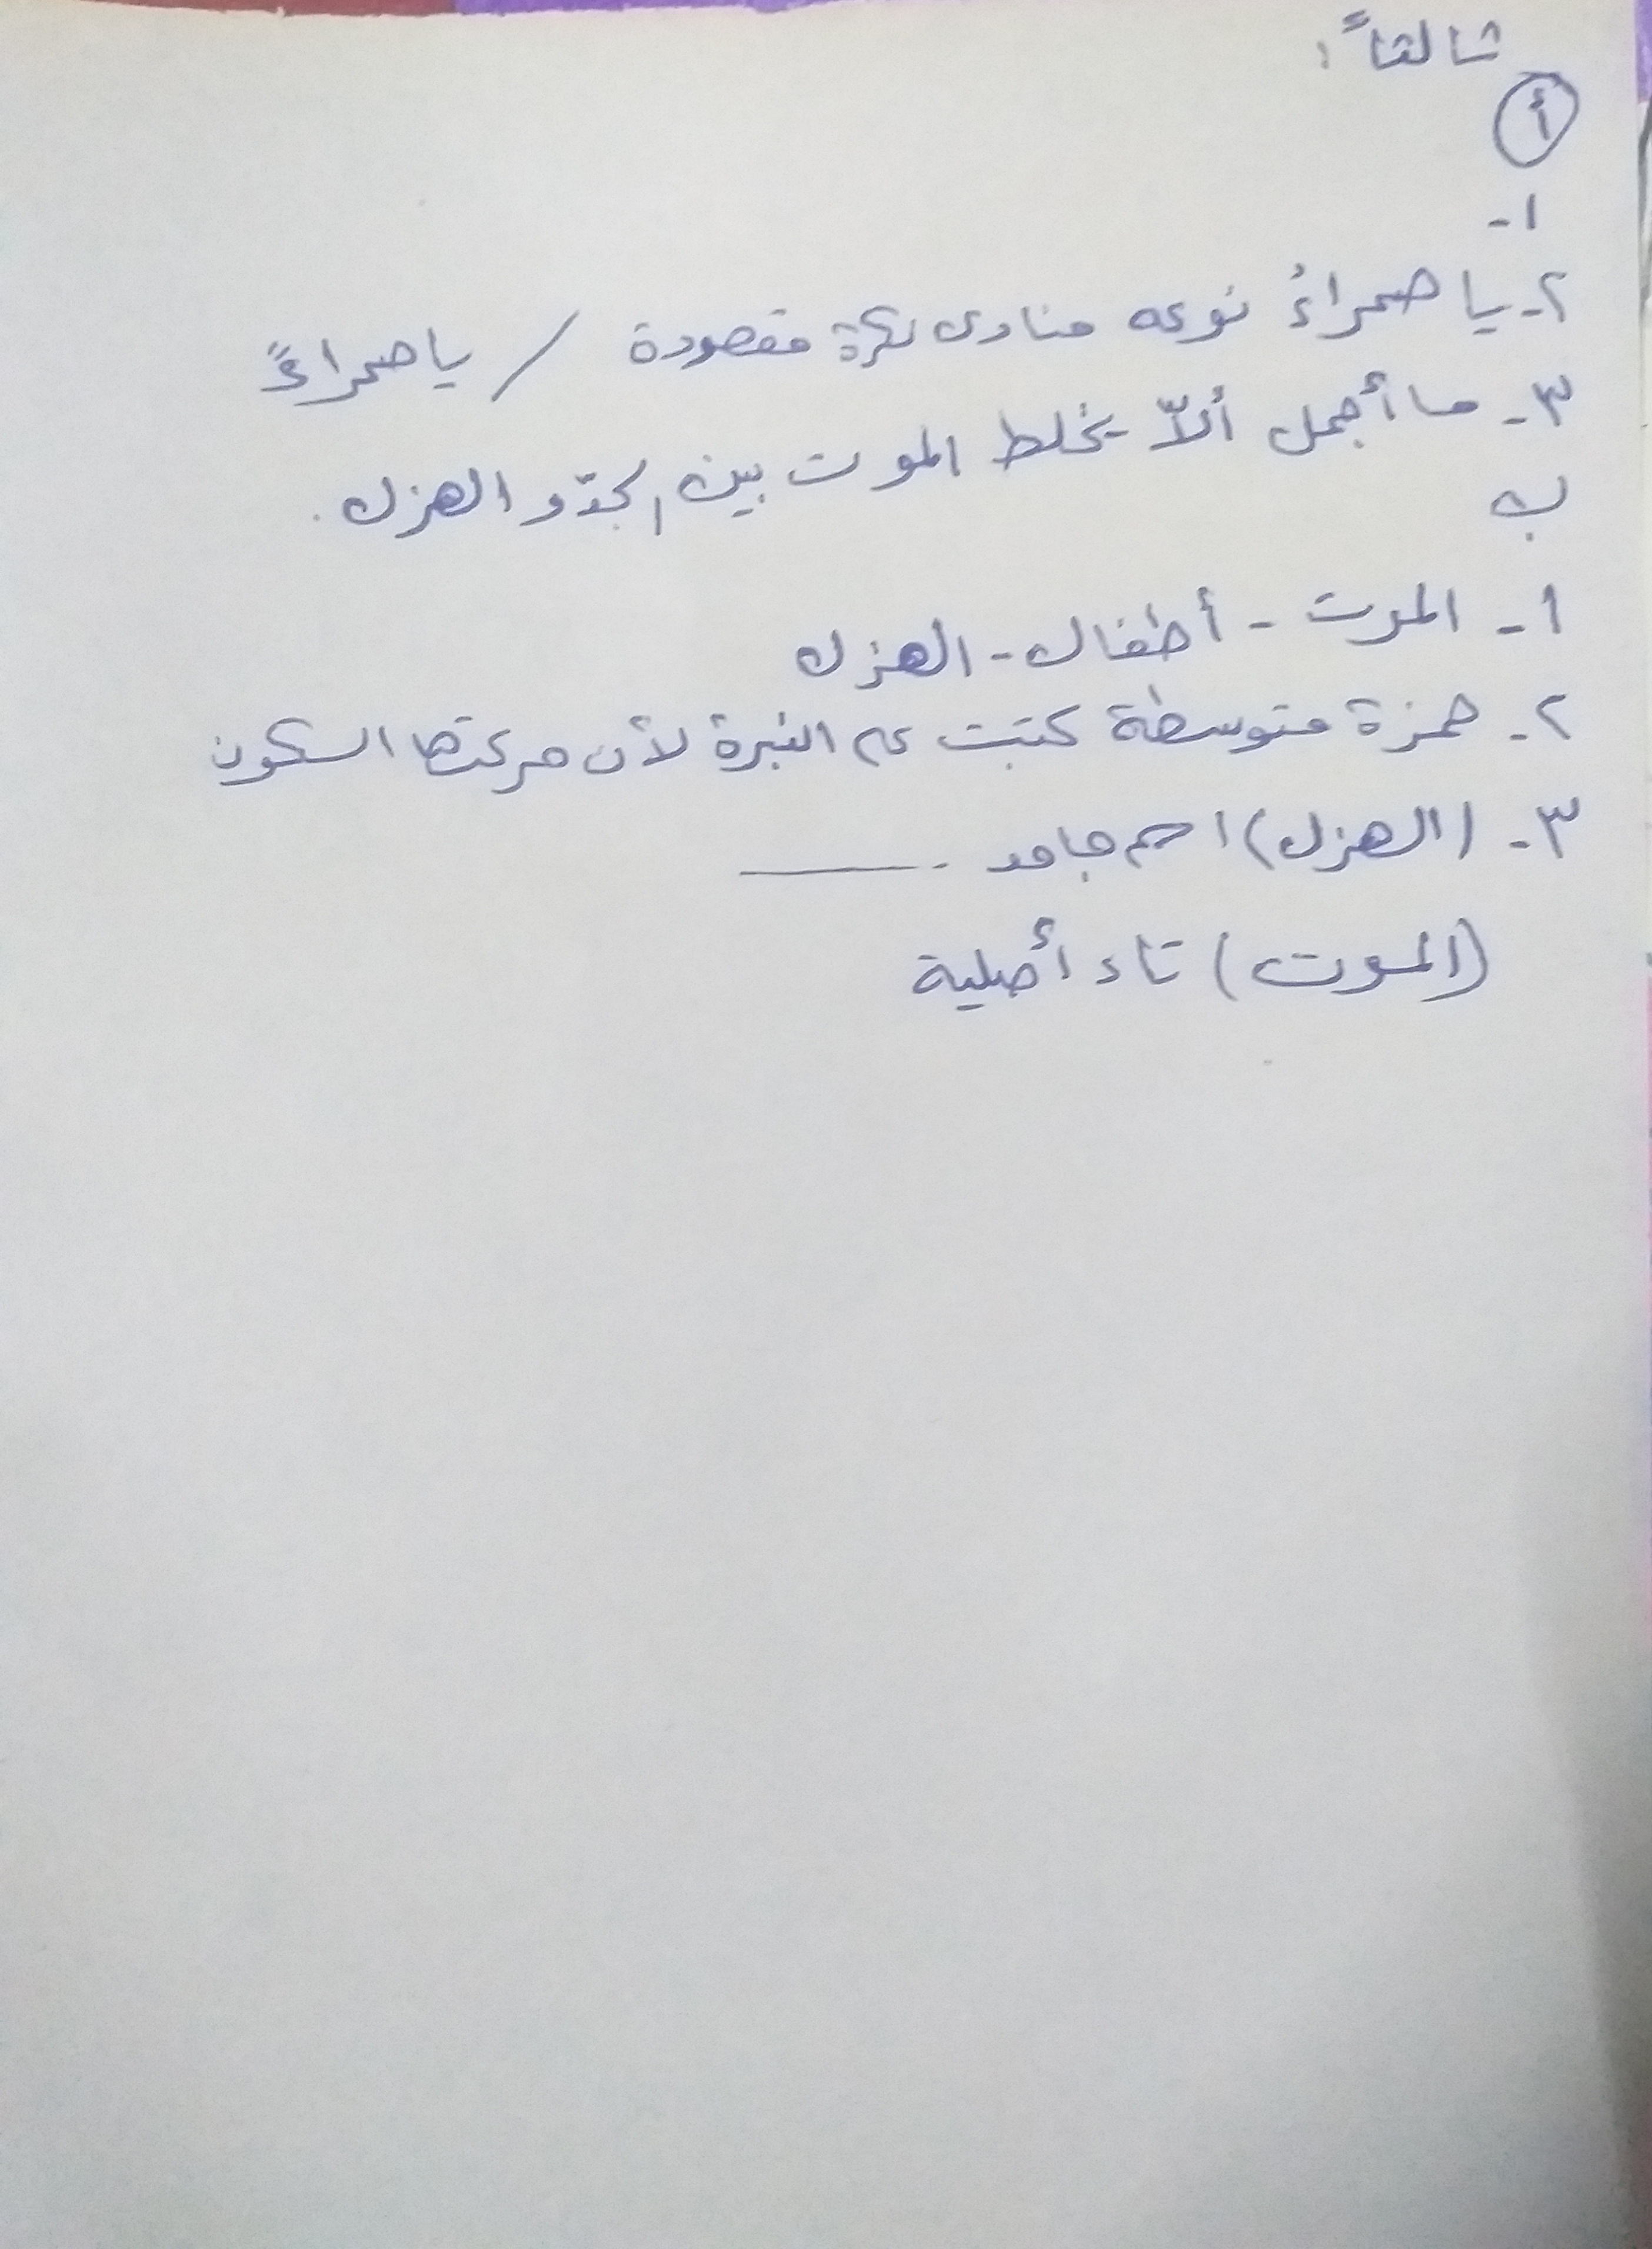 ثالثاً :
أ
١-
٢- يا صحراءُ نوعه منادى نكرة مقصودة / يا صحراءً
٣- ما أجمل ألاّ يخلط الموت بين الجدّ و الهزل .
ب
١- الموت - أطفال - الهزل
٢- همزة متوسطة كتبت على النبرة لأن حركتها السكون
٣- (الهزل) اسم جامد
(الموت) تاء أصلية